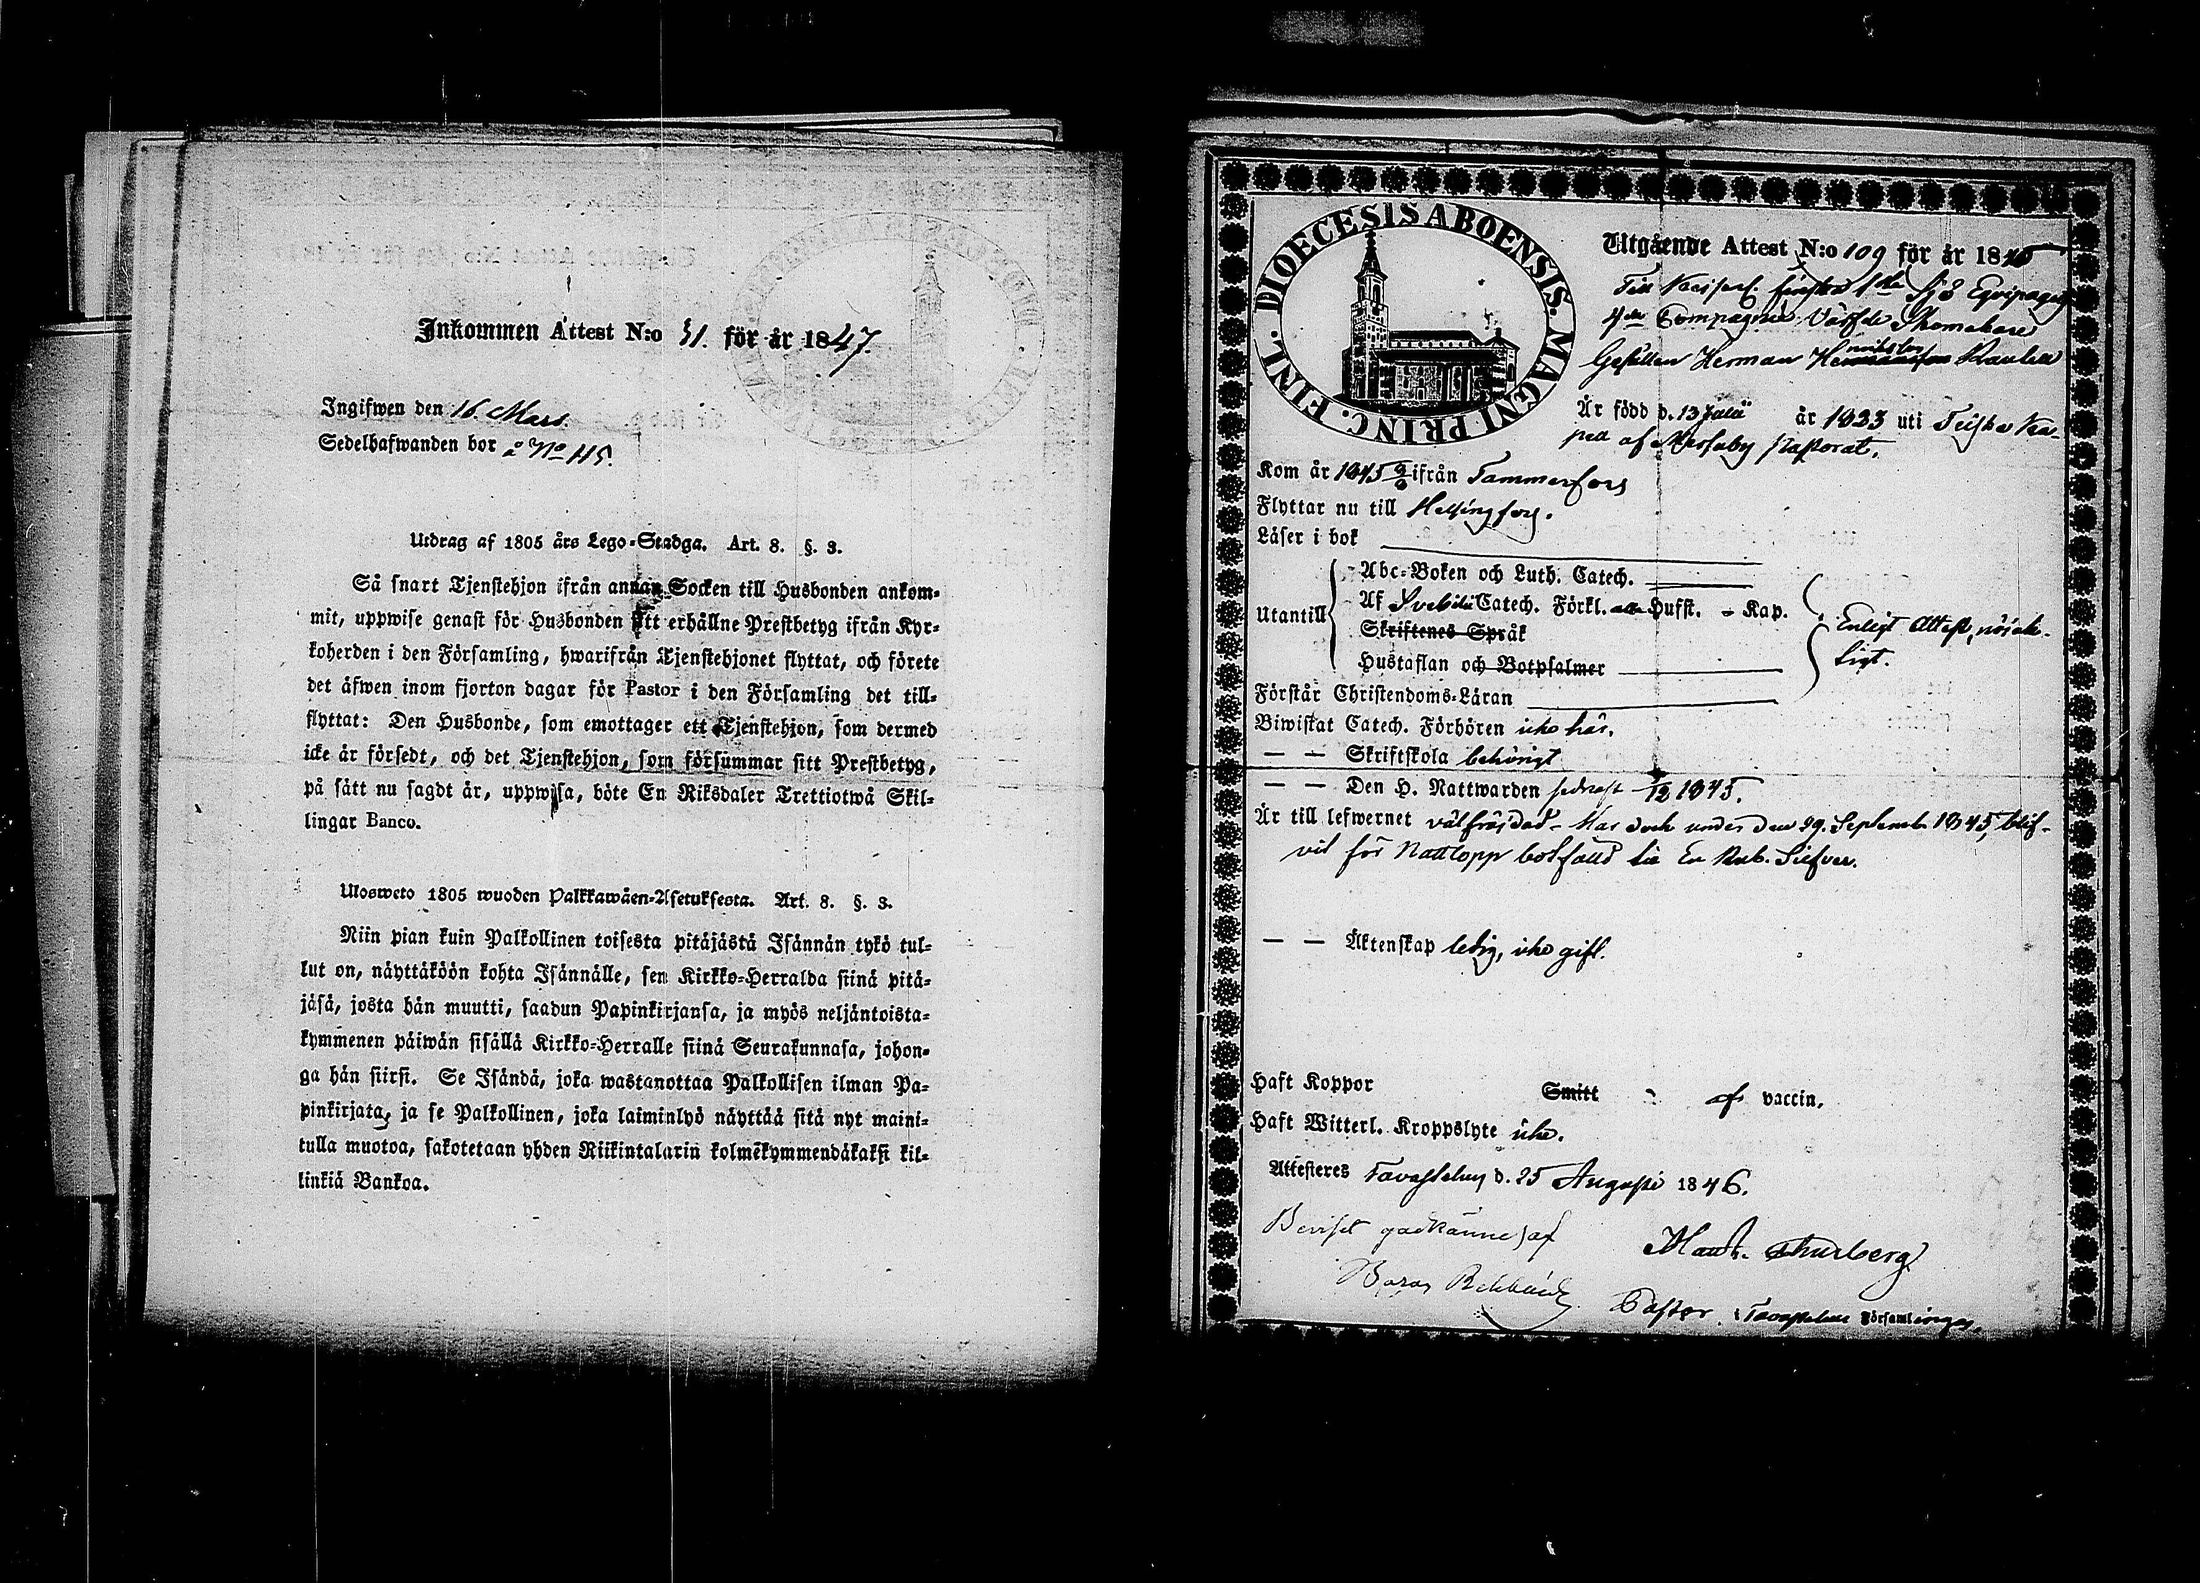 Inkommen Attest N:o 31. för år 1847.
Ingifwen den 16 Mars.
Sedelhafwanden bor å No 115.
Utdrag af 1805 års Lego-Stadga. Art. 8. §. 3.
Så snart Tjenstehjon ifrån annan Socken till Husbonden ankom-
mit, uppwise genast för Husbonden sitt erhållne Prestbetyg ifrån Kyr-
koherden i den Församling, hwarifrån Tjenstehjonet flyttat, och förete
det äfwen inom fjorton dagar för Pastor i den Församling det till-
flyttat: Den Husbonde, som emottager ett Tjenstehjon, som dermed
icke är försedt, och det Tjenstehjon, som försummar sitt Prestbetyg,
på sätt nu sagdt är, uppwisa, böte En Riksdaler Trettiotwå Skil-
lingar Banco.
Ulosweto 1805 wuoden Palkkawäen-Asetuksesta. Art. 8. §. 3.
Niin pian kuin Palkollinen toisesta pitäjästä Isännän tykö tul-
lut on, näyttäköön kohta Isännälle, sen Kirkko-Herralda siinä pitä-
jäsä, josta hän muutti, saadun Papinkirjansa, ja myös neljäntoista-
kymmenen päiwän sisällä Kirkko-Herralle siinä Seurakunnasa, johon-
ga hän siirsi. Se Isändä, joka wastanottaa Palkollisen ilman Pa-
pinkirjata, ja se Palkollinen, joka laiminlyö näyttää sitä nyt maini-
tulla muotoa, sakotetaan yhden Riikintalarin kolmekymmendäkaksi kil-
linkiä Bankoa.
DIOECESIS ABOENSIS. MAGNI PRINC. FINL.
Utgående Attest N:o 109 för år 1846
Till Kaiserl. finska 1sta Sjö Eqvipagets
4de Compagnie Värfde Skomakare
Gesällen Herman Raulin
Är född d. 13 Julii år 1823 uti Teisko Ka-
pell af Messuby Pastorat.
Kom år 1845 ifrån Tammerfors
Flyttar nu till Helsingfors.
Läser i bok
Utantill
Abc-Boken och Luth. Catech.
Af Svebilii Catech. Förkl. Husst. - Kap.
Skriftenes Språk
Hustaflan och Botpsalmer
Enligt Attest, nöjak-
ligt.
Förstår Christendoms-Läran
Biwistat Catech. Förhören icke här.
— — Skriftskola behörigt
— — Den H. Nattwarden sednast 1/12 1845.
Är till lefwernet välfräjdad - Har dock under den 29. Septemb. 1845, blif-
vit för Nattlopp botfälld till En Rub. Silfver.
— — Äktenskap ledig, icke gift.
Haft Koppor Smitt af vaccin.
Haft Witterl. Kroppslyte icke.
Attesteres Tavastehus d. 25 Augusti 1846.
Beviset godkännes af
Pastor i Tavastehus Församlingar.